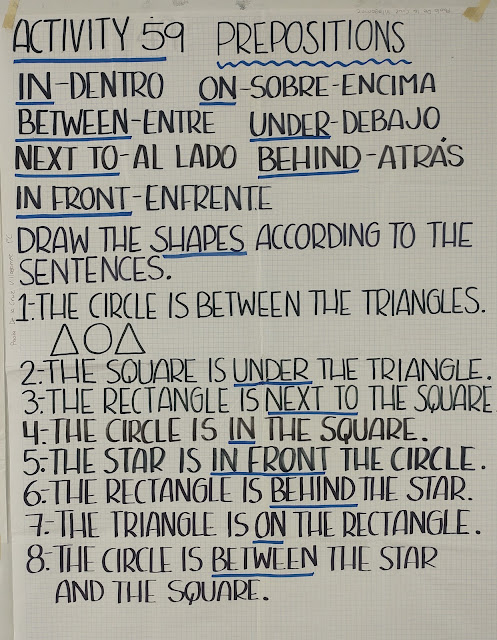 ACTIVITY 59 PREPOSITIONS
IN-DENTRO ON-SOBRE-ENCIMA
BETWEEN-ENTRE UNDER-DEBAJO
NEXT TO-AL LADO BEHIND-ATRÁS
IN FRONT-ENFRENTE
DRAW THE SHAPES ACCORDING TO THE
SENTENCES.
1:THE CIRCLE IS BETWEEN THE TRIANGLES.
2:THE SQUARE IS UNDER THE TRIANGLE.
3:THE RECTANGLE IS NEXT TO THE SQUARE
4:THE CIRCLE IS IN THE SQUARE.
5:THE STAR IS IN FRONT THE CIRCLE.
6:THE RECTANGLE IS BEHIND THE STAR.
7:THE TRIANGLE IS ON THE RECTANGLE.
8:THE CIRCLE IS BETWEEN THE STAR
AND THE SQUARE.